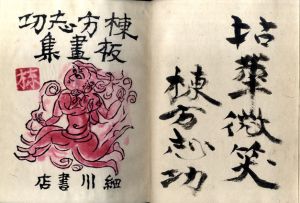 拈華微笑
棟方志功
棟方志功
板畫集
細川書店